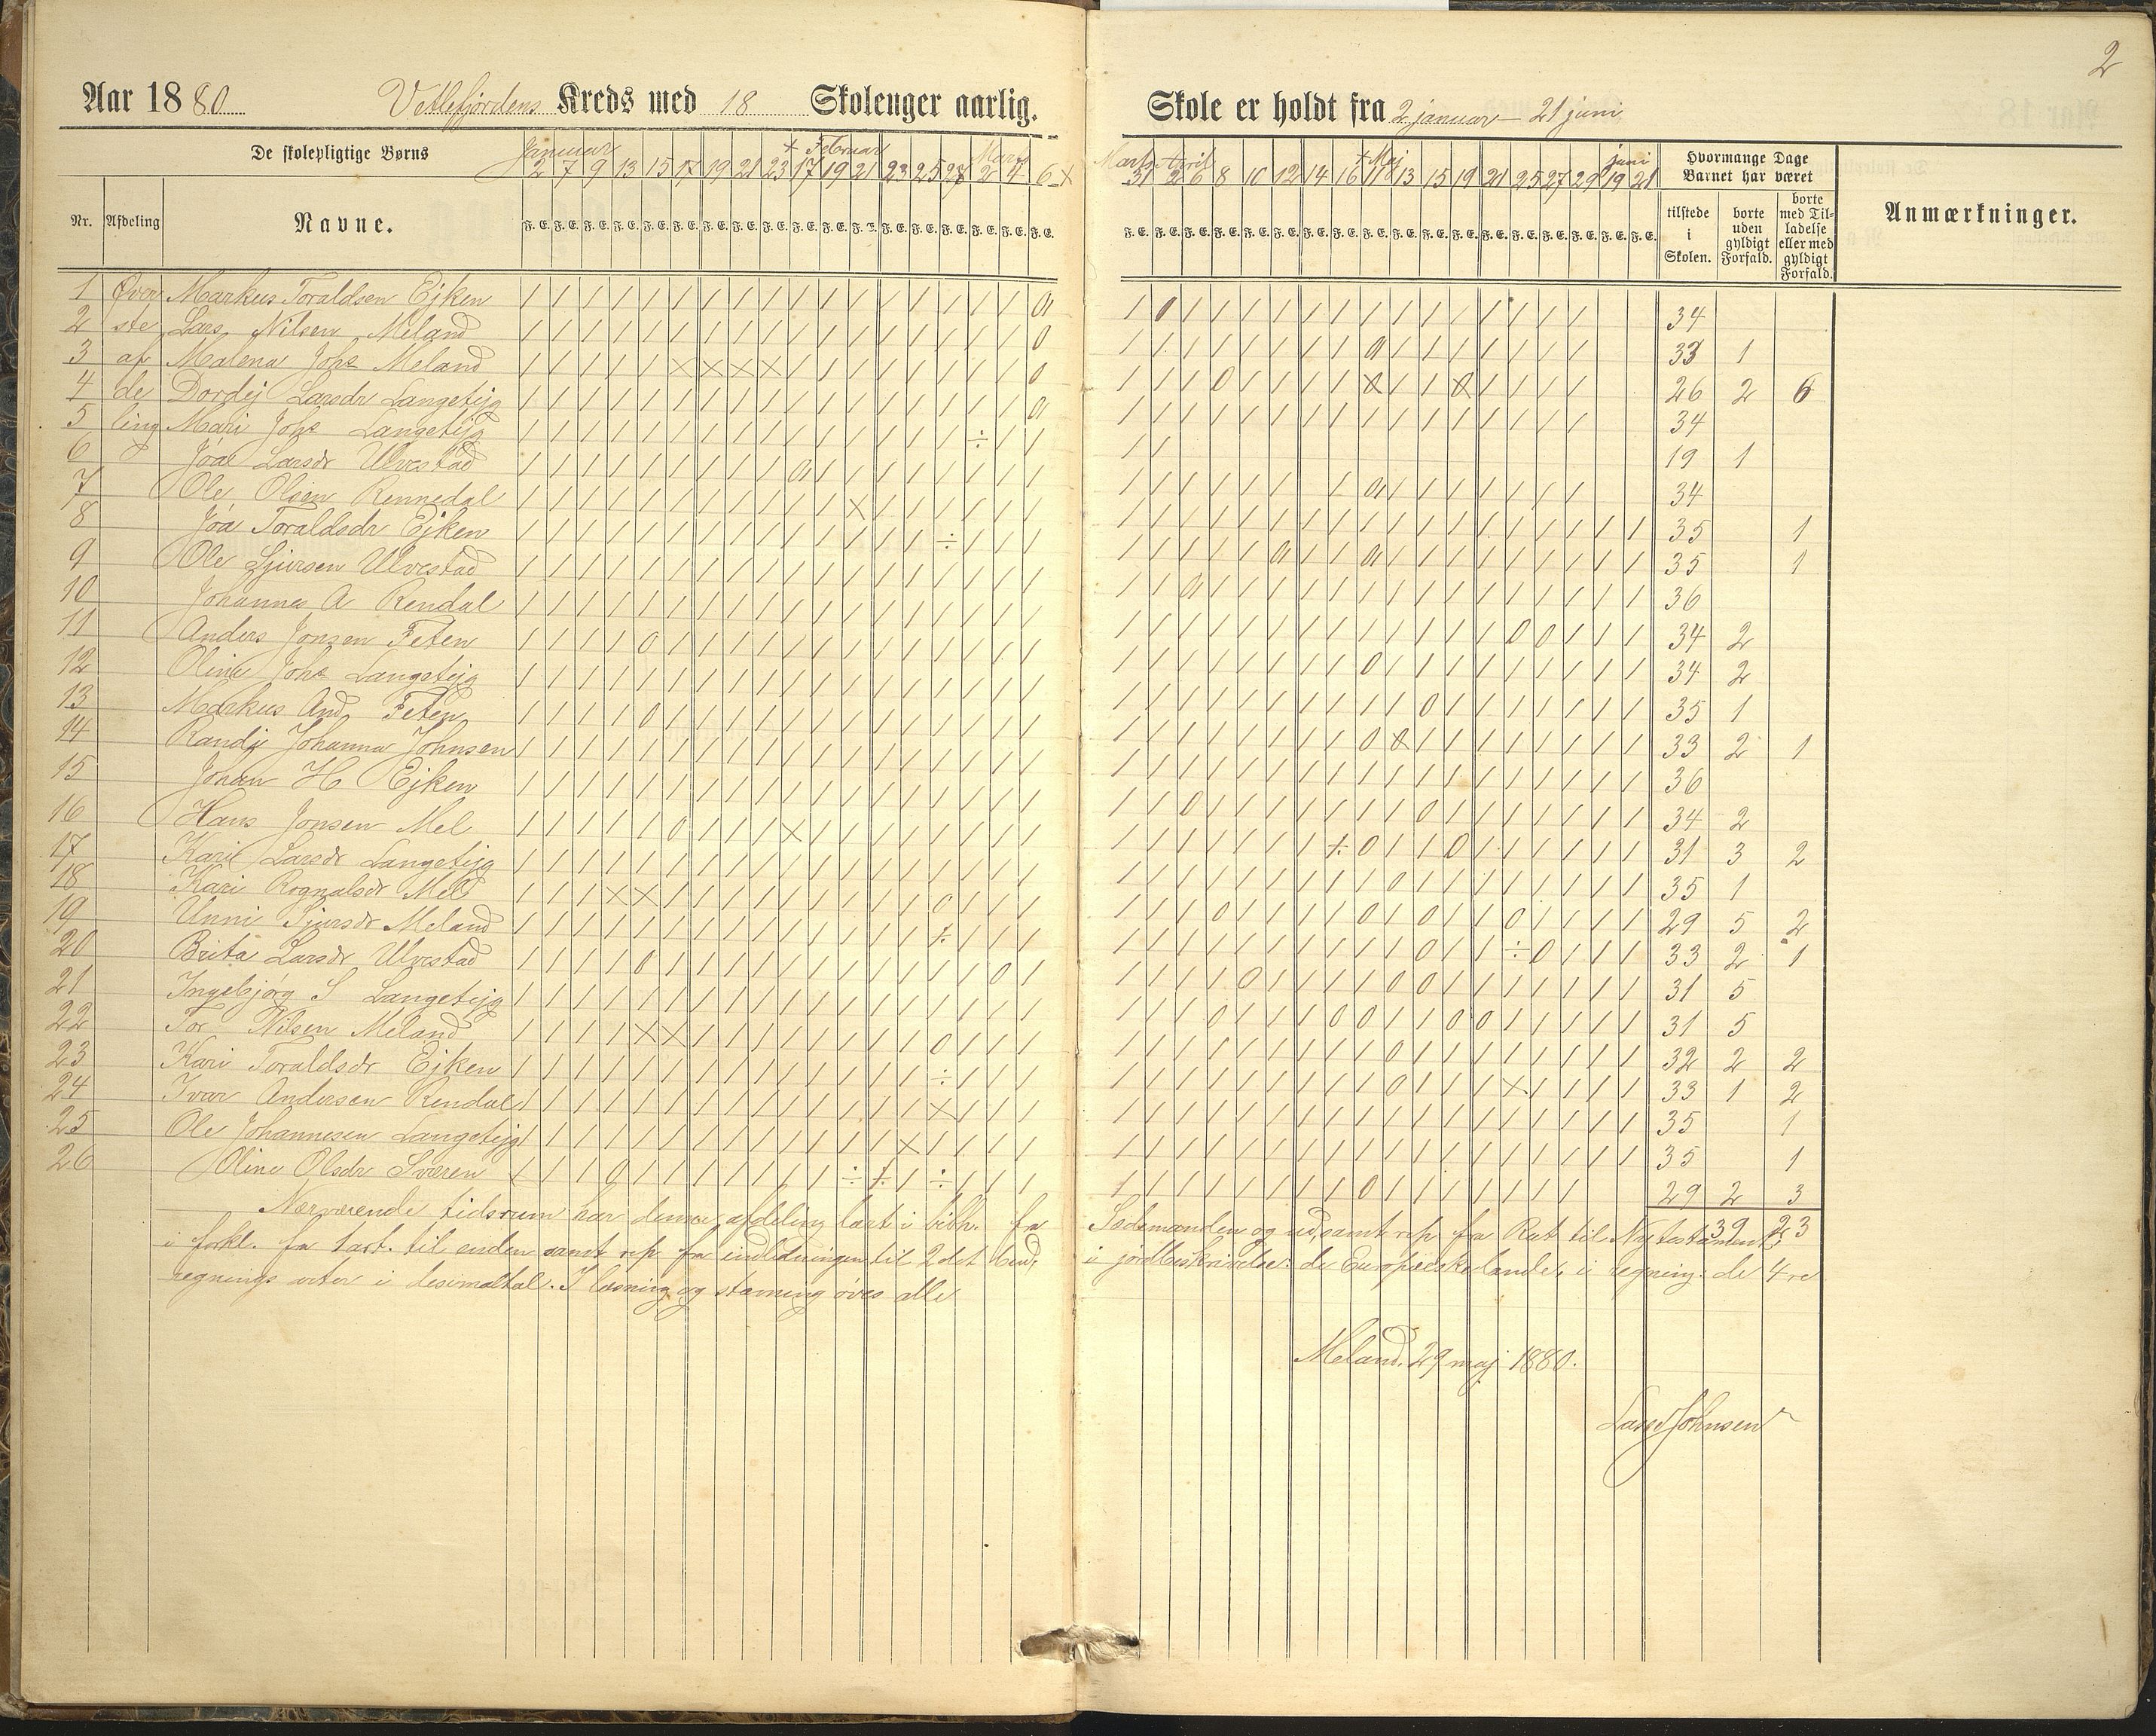 2
Aar 1880 Vetlefjordens Kreds med 18 Skoleuger aarlig. Skole er holdt fra 2 januar — 21 juni
De skolepligtige Børns
Januar + Februar Marts
2 7 9 13 15 17 19 21 23 17 19 21 23 25 27 2 4 6 x
Marts April + Maj juni
31 2 6 8 10 12 14 16 11 13 15 19 21 25 27 29 19 21
Hvormange Dage Barnet har været
Nr. Afdeling Navne. F. E. F. E. F. E. F. E. F. E. F. E. F. E. F. E. F. E. F. E. F. E. F. E. F. E. F. E. F. E. F. E. F. E. F. E.
tilstede i Skolen. borte uden gyldigt Forfald. borte med Tilladelse eller med gyldigt Forfald. Anmærkninger.
1 Øver Markus Toraldsen Ejken 34
2 ste Lars Nilsen Meland 33 1
3 af Malena Johs Meland 26 2 6
4 de Dordej Larsdr Langetejg 34
5 ling Mari Johs Langetejg 19 1
6 Joa Larsdr Ulvestad 34
7 Ole Olsen Rennedal 35 1
8 Joa Toraldsdr Ejken 35 1
9 Ole Sjursen Ulvestad 36
10 Johannes A Rendal 34 2
11 Anders Jonsen Feten 34 2
12 Oline Johs Langetejg 35 1
13 Markus And. Feten 33 2 1
14 Randj Johanna Johnsen 36
15 Johan H Ejken 34 2
16 Hans Jonsen Mel 31 3 2
17 Kari Larsdr Langetejg 35 1
18 Kari Rognalsdr Mel 29 5 2
19 Unni Sjursdr Meland 33 2 1
20 Brita Larsdr Ulvestad 31 5
21 Ingebjørg S Langetejg 31 5
22 Tor Nilsen Meland 32 2 2
23 Kari Toraldsdr Ejken 33 1 2
24 Ivar Andersen Rendal 35 1
25 Ole Johannesen Langetejg 35 1
26 Oline Olsdr Sværen 29 2 3
39 23
Nærværende tidsrum har denne afdeling læst i bibh. fra Sædemanden og ud, samt rep fra Rut til Ny testament;
i forkl. fra 1 art. til enden samt rep fra indledningen til 2det bud; i jordbeskrivelse: de Europæiske lande; i regning: de 4 re
regnings arter i desimaltal. I læsning og stavning øves alle
Meland. 29 maj 1880.
Lasse Johnsen